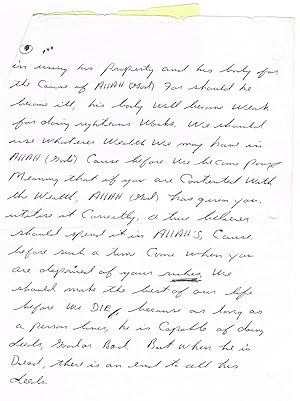 in using his property and his body for
the Cause of AllAH (God) For should he
become ill, his body will become weak
for doing righteous works. We should
use whatever wealth we may have in
AllAH (God) Cause before we become poor
Meaning that if you are Contented with
the Wealth, AllAH (God) has given you,
utilize it Correctly, a true believer
should spend it in AllAH'S, Cause,
before such a time Come when you
are deprived of your riches, We
should make the best of our life
before we DIE, because as long as
a person lives, he is Capable of doing
deeds, Good or Bad. But when he is
Dead, there is an end to all his
deeds.